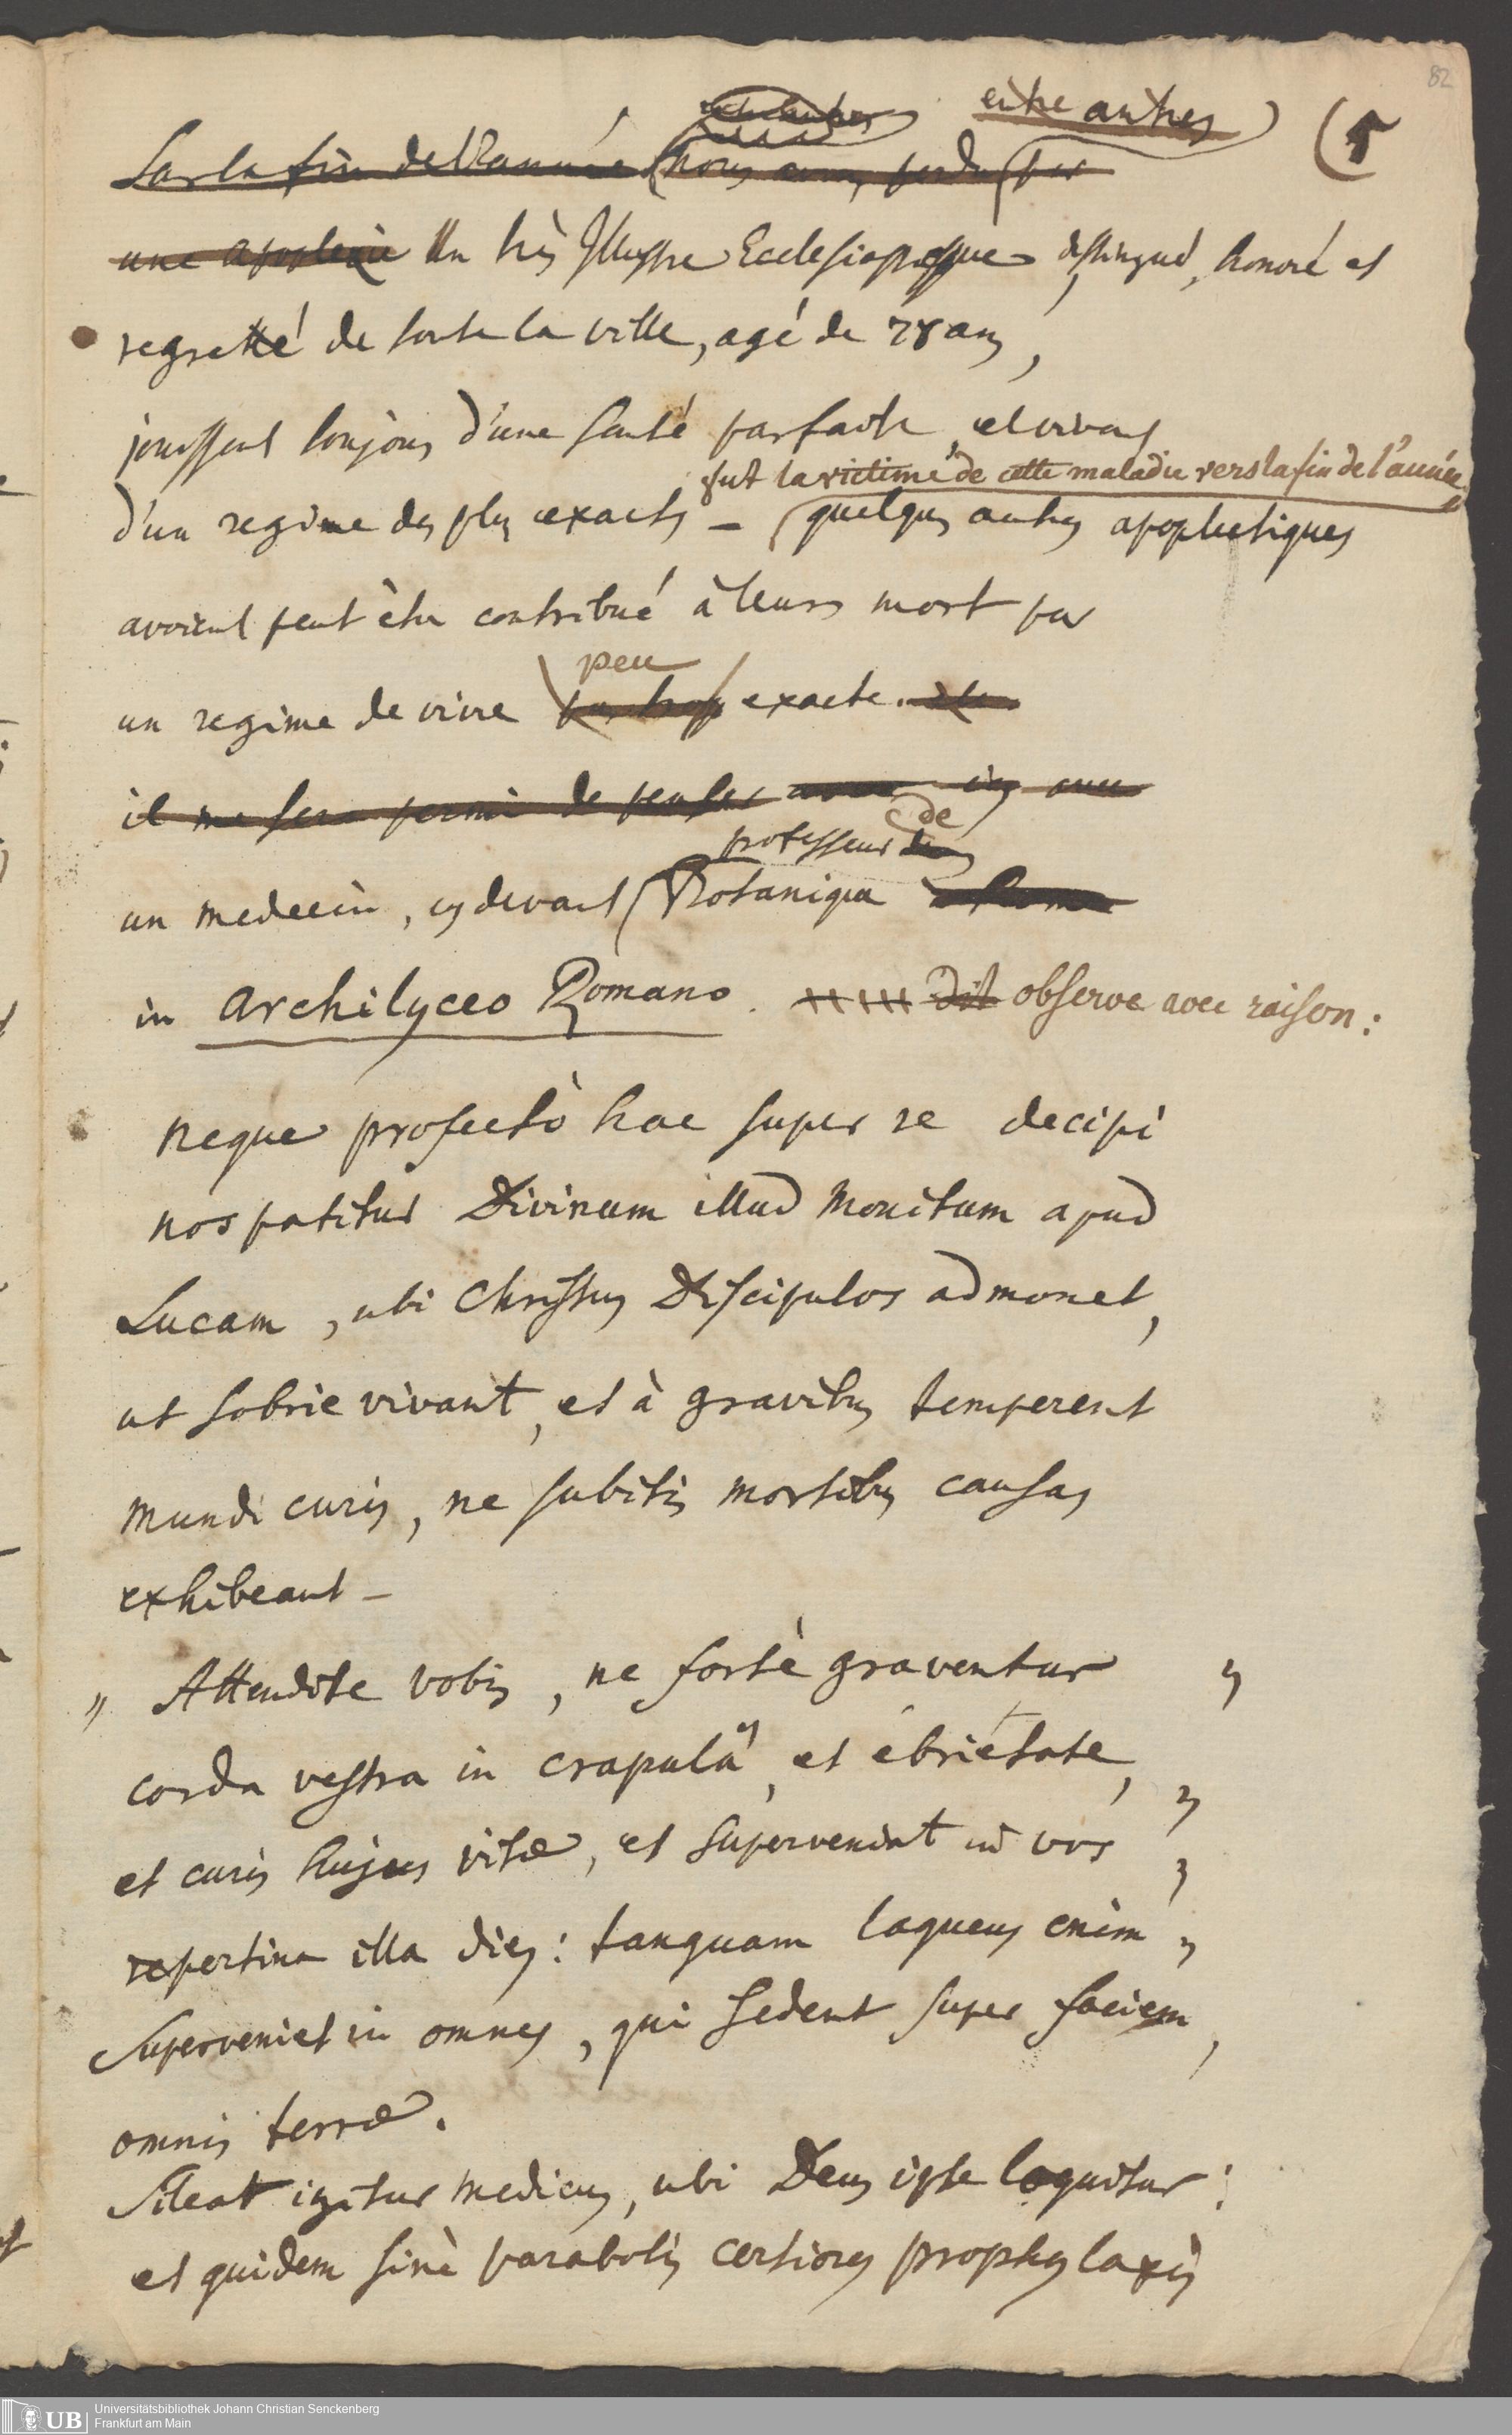 82
entre autres
(5
Sur la fin de l'année nous avons perdu par
une apoplexie Un très Illustre Ecclesiastique distingué, honoré et
regretté de toute la ville, agé de 78 ans,
jouissent toujours d'une santé parfaite, et vivant
fut la victime de cette maladie vers la fin de l'année
d'un regime des plus exacts – quelques autres apoplectiques
avoient peut être contribué à leurs mort par
peu
un regime de vivre pas trop exacte.
il me sera permi de penser avec
professeur de
un medecin, cy devant Botanique à Rome
in Archilyceo Romano. dit observe avec raison:
Neque profectò hac super re decipi
nos patitur Divinum illud Monitum apud
Lucam, ubi Christus Discipulos admonet,
ut sobrie vivant, et à gravibus temperent
mundi curis, ne subitis mortibus causas
exhibeant –
„ Attendite vobis, ne fortè graventur „
corda vestra in crapulâ, et ebrietate, „
et curis hujus vitæ, et superveniat in vos „
repertina illa dies: tanquam laqueus enim „
superveniet in omnes, qui sedent super faciem,
omnis terræ.
Sileat igitur medicus, ubi Deus ipse loquitur:
et quidem sinè parabolis certiores prophylaxis
UB
Universitätsbibliothek Johann Christian Senckenberg
Frankfurt am Main